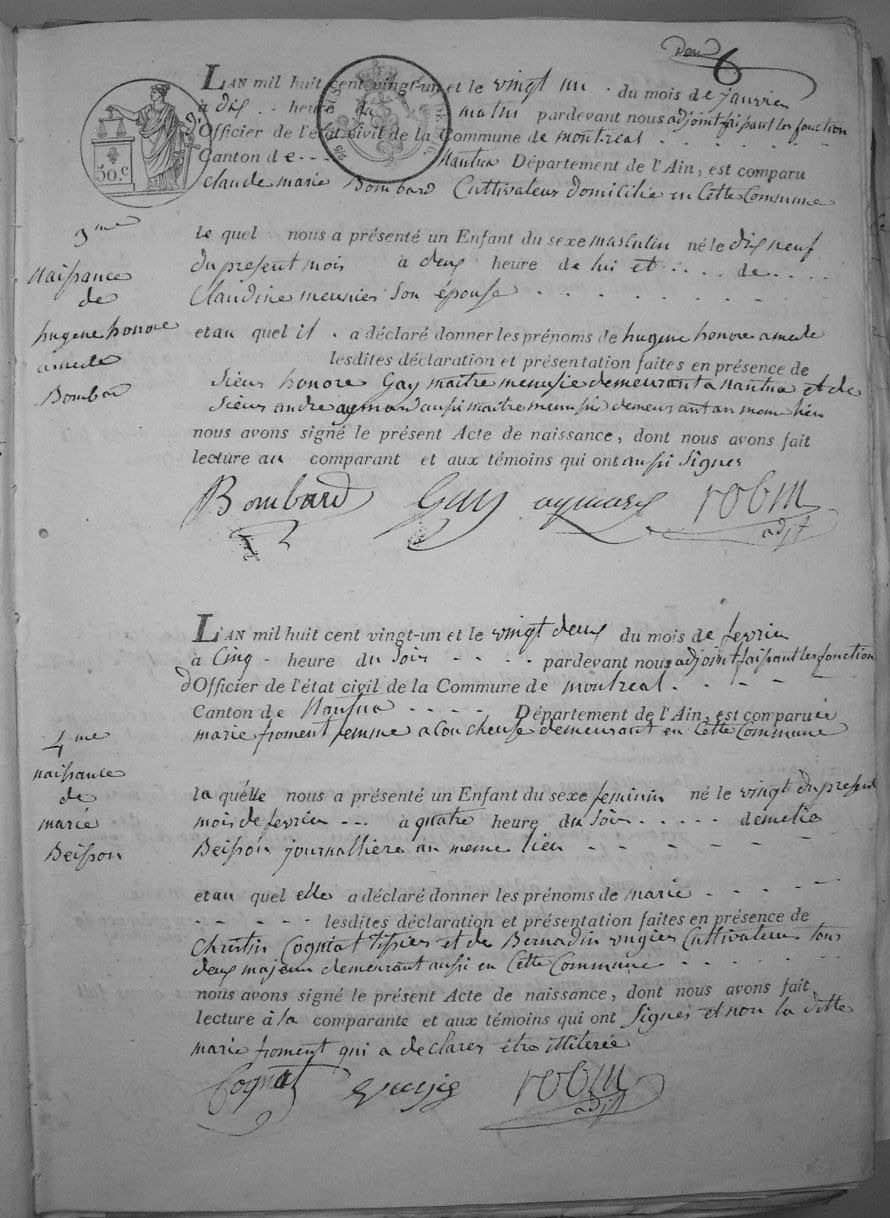 Deux
6
50.c
L'AN mil huit cent vingt-un et le vingt un . du mois de janvier
à dix . . heure du matin pardevant nous adjoint faisant les fonction
d'Officier de l'état civil de la Commune de montreal . . . . . .
Canton de - - - Nantua Département de l'Ain, est comparu
Claude marie Bombard Cultivateur domicilié en Cette Commune
3me
Naissance
de
hugene honore
amede
Bombard
le quel nous a présenté un Enfant du sexe masculin né le dix neuf
du present mois à deux heure de lui et . . . . de . . . .
Claudine meunier Son épouse . . . . . . .
et au quel il . a déclaré donner les prénoms de hugene honore amede
lesdites déclaration et présentation faites en présence de
Sieur honore Gay maitre menusie demeurant a nantua et de
Sieur andre aymard aussi maitre menusie demeurant au meme lieu
nous avons signé le présent Acte de naissance, dont nous avons fait
lecture au comparant et aux témoins qui ont aussi Signes
Bombard Gay aymard robin
adjt
L'AN mil huit cent vingt-un et le vingt deux du mois de fevrier
à Cinq - heure du Soir - - - - - pardevant nous adjoint faisant les fonction
d'Officier de l'état civil de la Commune de montreal . - - - -
Canton de Nantua - - - - Département de l'Ain, est comparue
marie froment femme acoucheuse demeurant en Cette Commune
4me
naissance
de
marie
Beisson
la quelle nous a présenté un Enfant du sexe feminin né le vingt du present
mois de fevrier - - - à quatre heure du Soir . - - - - de melie
Beisson journalliere au meme lieu - - - - - - -
et au quel elle a déclaré donner les prénoms de marie - - - - -
- - - - - lesdites déclaration et présentation faites en présence de
Christin Cogniat tissier et de Bernadin Cultivateur tous
deux majeur demeurant aussi en Cette Commune - - . . . . . .
nous avons signé le présent Acte de naissance, dont nous avons fait
lecture à la comparante et aux témoins qui ont Signes et non la ditte
marie froment qui a declarer être illiterée
Cogniat robin
adjt